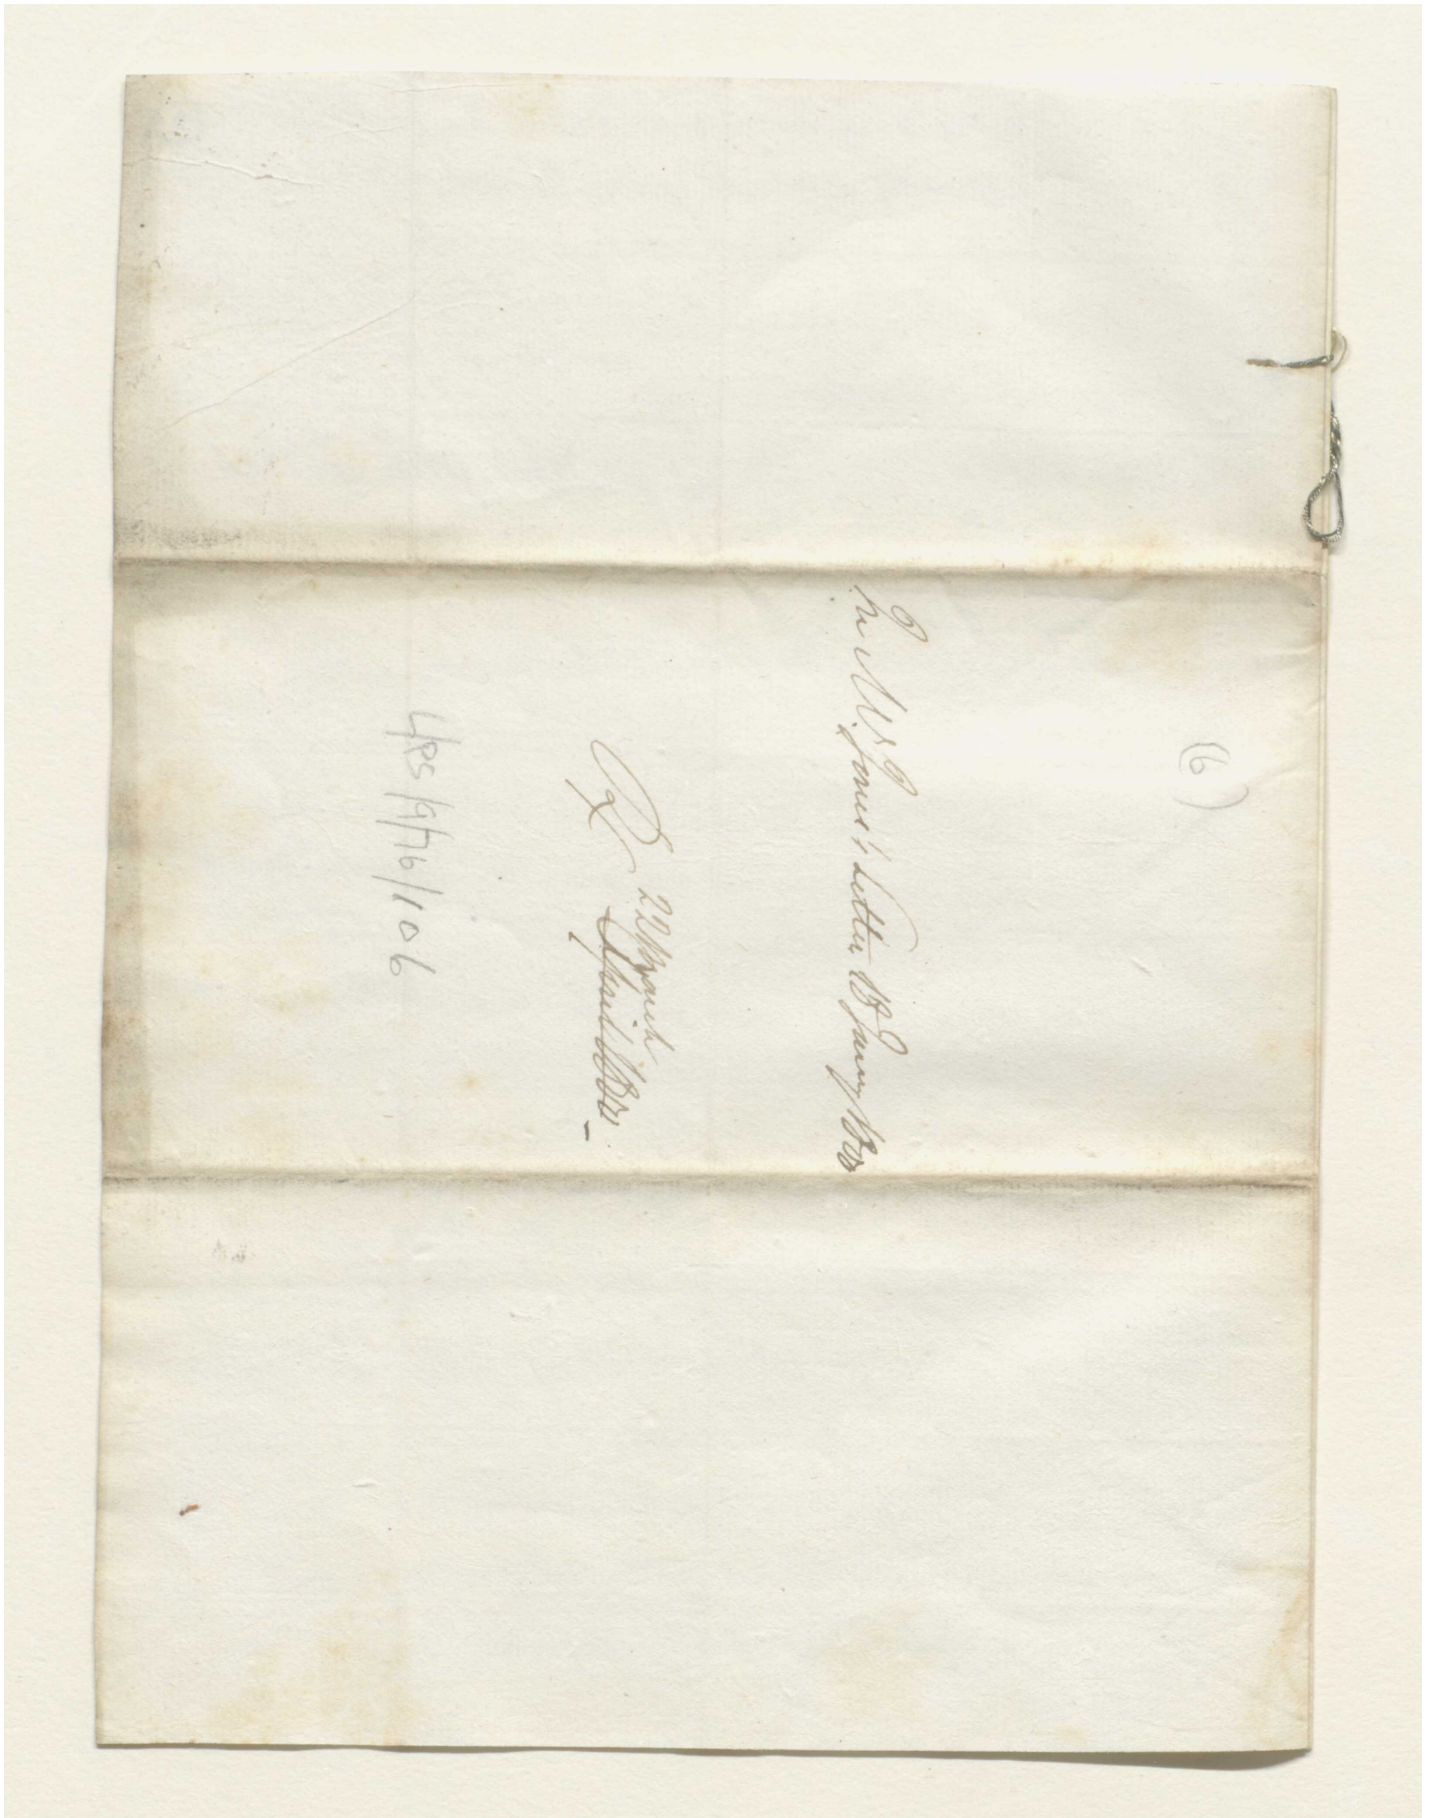 (6)
In Mr. Jones's Letter 18 Jany 180
R 22 March
April 180
L/PS/9/76/106